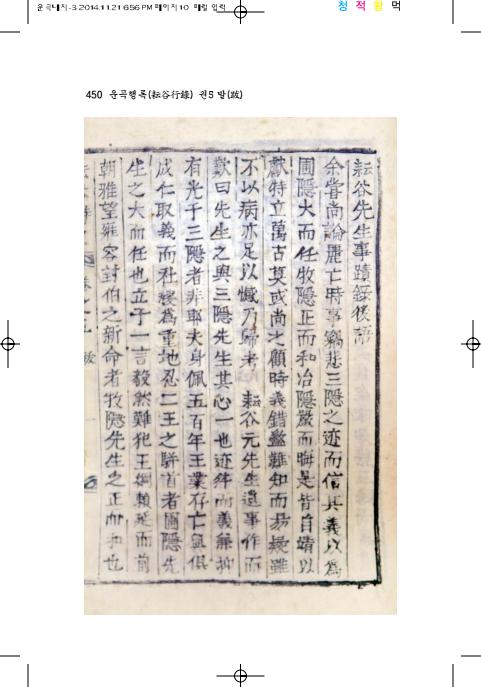 운곡대지-3 2014.11.21 6:56 PM 페이지10 매컬 입력
청 적 황 먹
450 운곡행록(耘谷行錄) 권5 발(跋)
耘谷先生事蹟錄後語
余嘗尚論麗亡時事竊悲三隱之迹而信其義以爲
圃隱大而任牧隱正而和冶隱嚴而晦是皆自靖以
獻特立萬古莫或尚之顧時義錯盭難知而易疑雖
不以病亦足以憾乃歸考 耘谷元先生遺事作而
歎曰先生之與三隱先生其心一也迹絆而義無拘
有光于三隱者非耶夫身佩五百年王業存亡與俱
成仁取義而社稷爲重地忍二王之騈首者圃隱先
生之大而任也立于一言毅然難犯王綱賴延而前
朝雅望雍容封伯之新命者牧隱先生之正而和也